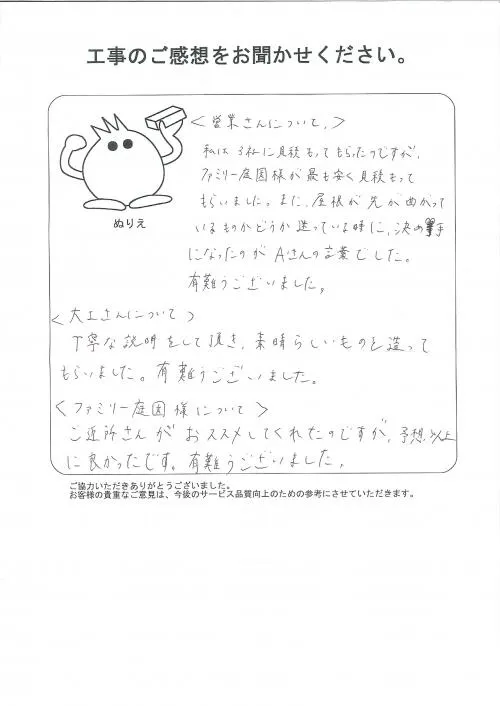 工事のご感想をお聞かせください。
<営業さんについて。>
私は3社に見積もってもらったのですが、
ファミリー庭園様が最も安く見積もって
もらいました。また、屋根が先が曲がって
いるものかどうか迷っている時に、決め手
になったのがAさんの言葉でした。
有難うございました。
ぬりえ
<大工さんについて>
丁寧な説明をして頂き、素晴らしいものを造って
もらいました。有難うございました。
<ファミリー庭園様について>
ご近所さんがおススメしてくれたのですが、予想以上
に良かったです。有難うございました。
ご協力いただきありがとうございました。
お客様の貴重なご意見は、今後のサービス品質向上のための参考にさせていただきます。